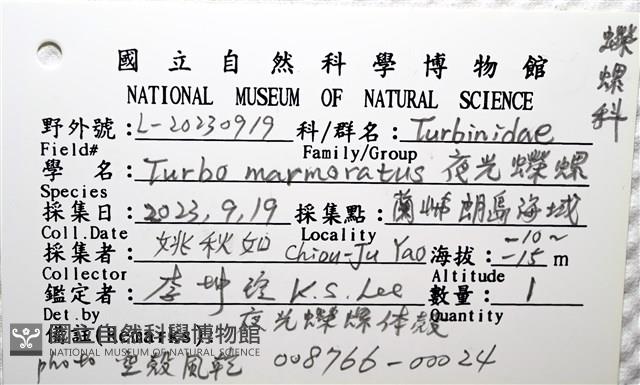 蠑螺科
國立自然科學博物館
NATIONAL MUSEUM OF NATURAL SCIENCE
野外號:L-20230919 科/群名:Turbinidae
Field# Family/Group
學 名:Turbo marmoratus 夜光蠑螺
Species
採集日:2023,9,19 採集點:蘭嶼朗島海域
Coll.Date Locality
採集者:姚秋如 Chiou-Ju Yao 海拔:-10~-15m
Collector Altitude
鑑定者:李坤瑄 K.S.Lee 數量:1
Det.by Quantity
(Remarks) 夜光蠑螺体殼
國立自然科學博物館
NATIONAL MUSEUM OF NATURAL SCIENCE
photo 空殼風乾 008766-00024